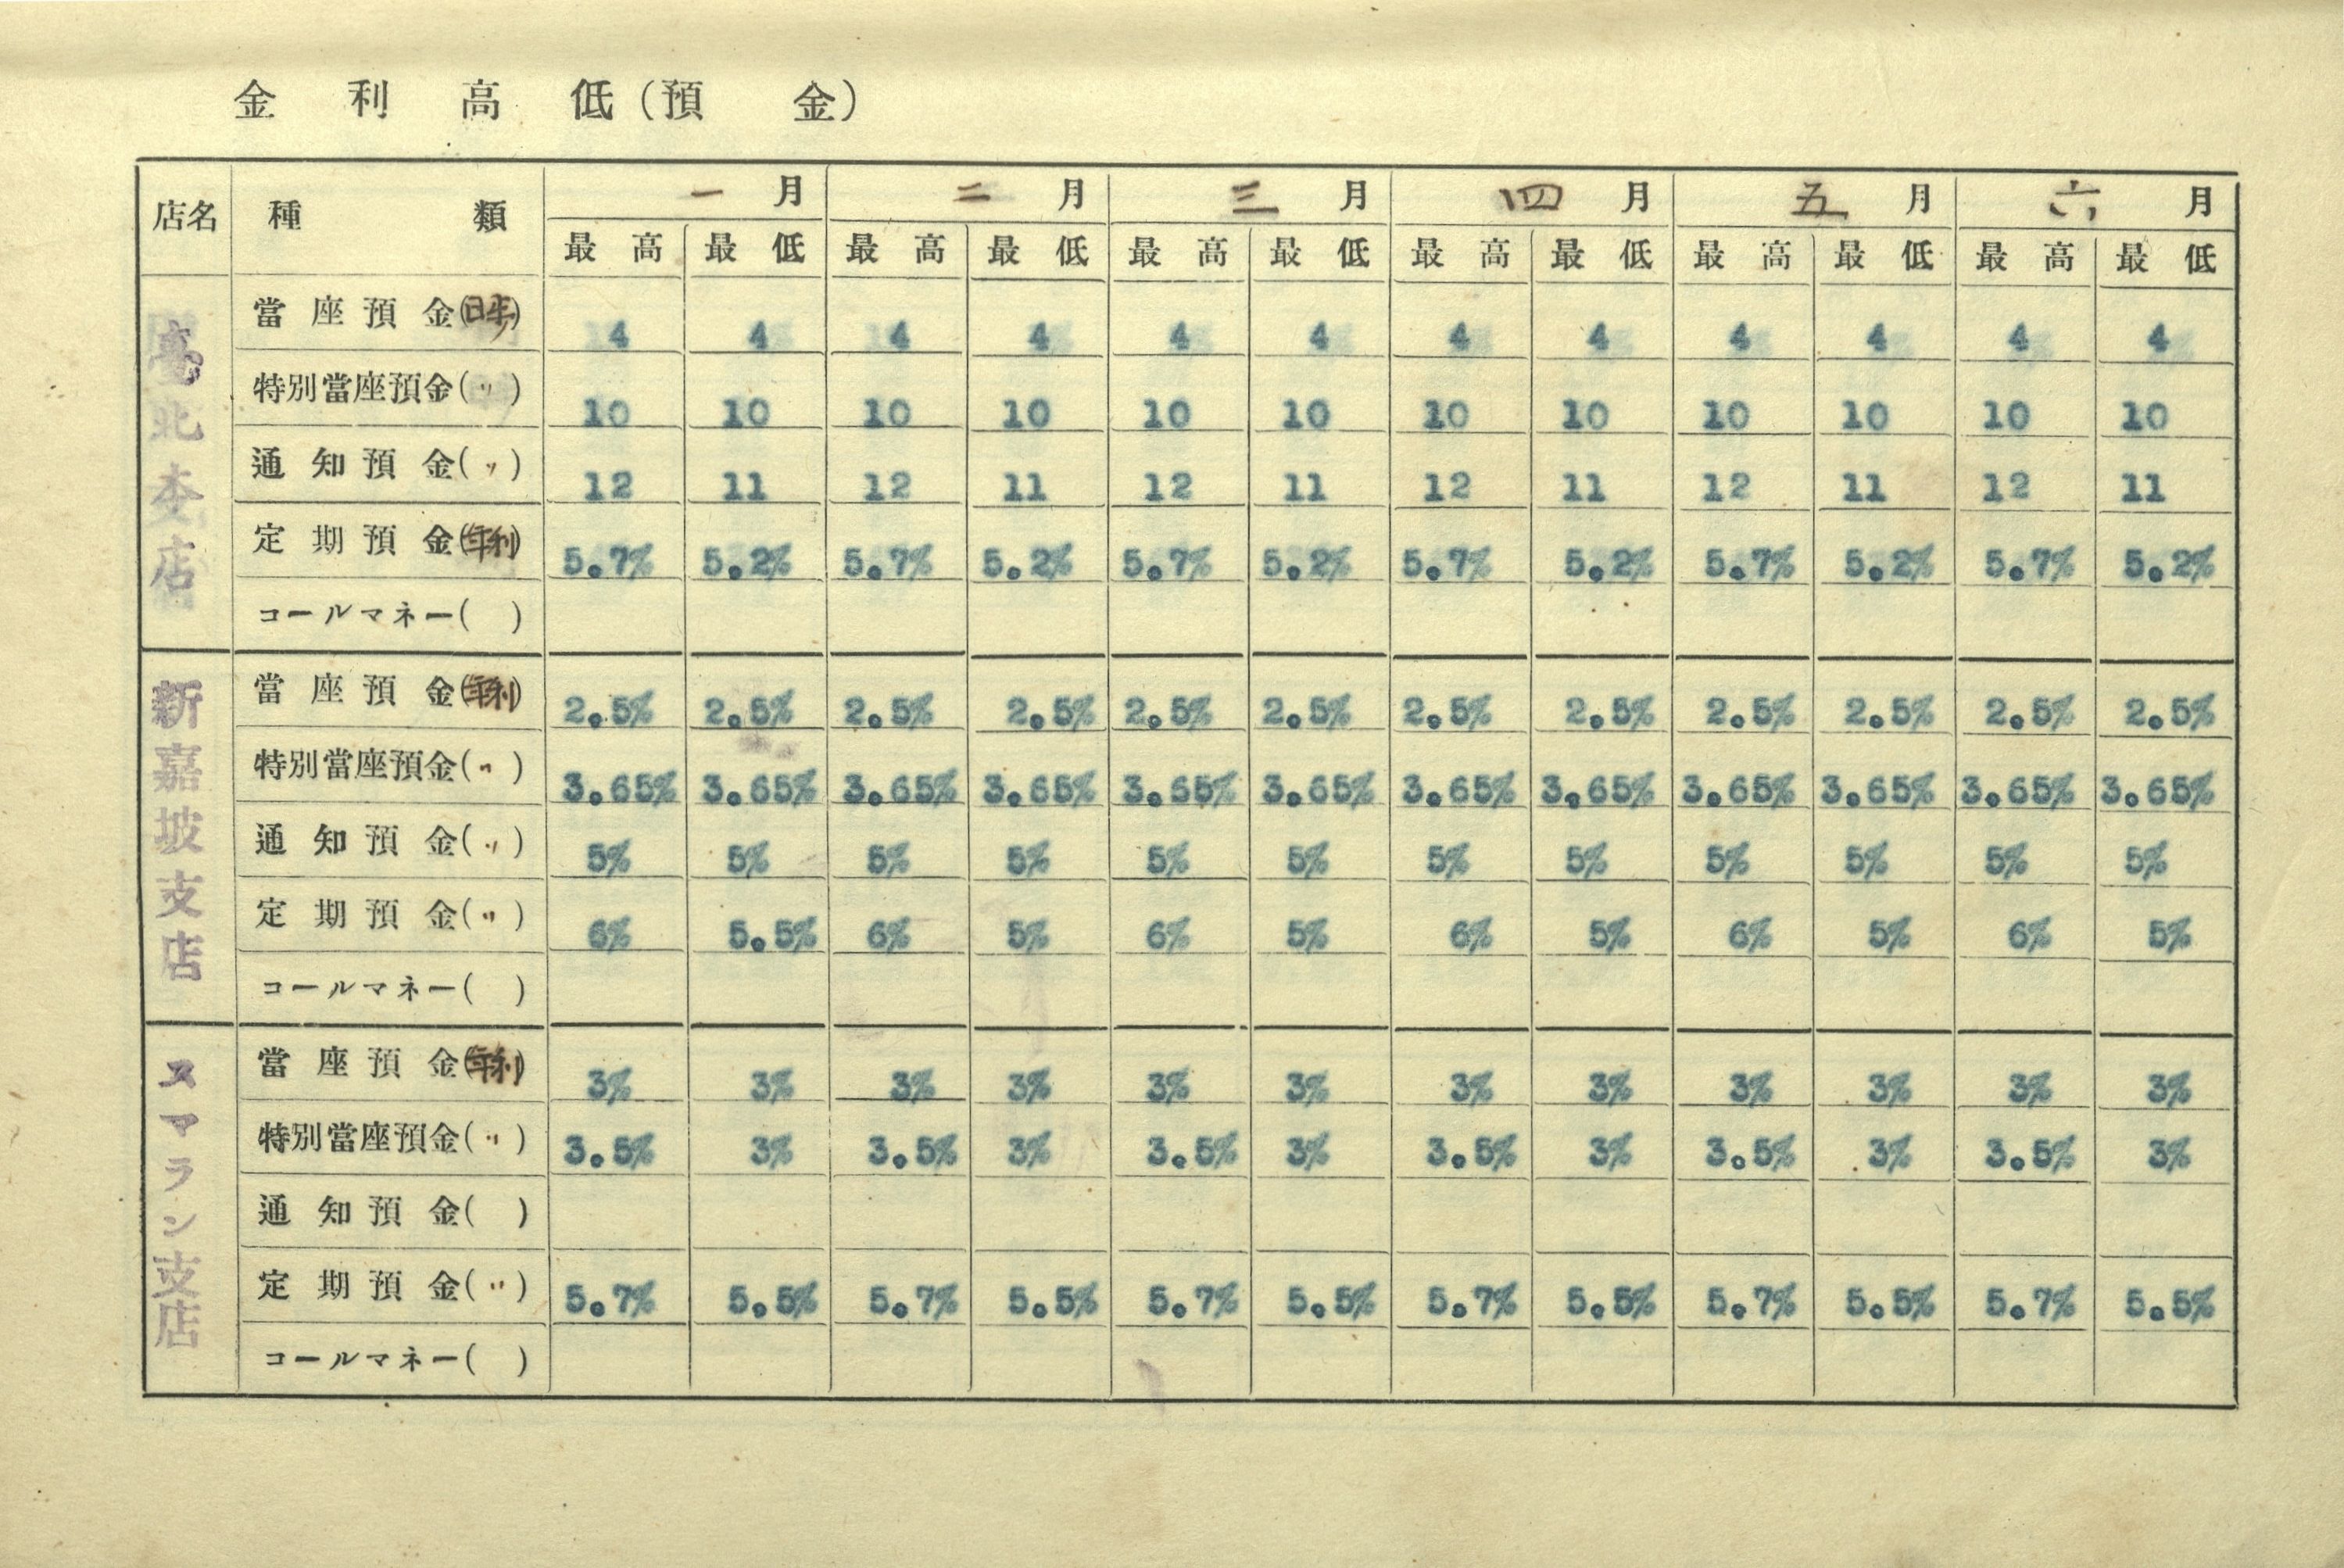 金利高低(預金)
店名 種類 一月 二月 三月 四月 五月 六月
最高 最低 最高 最低 最高 最低 最高 最低 最高 最低 最高 最低
臺北本店
當座預金(日歩) 4 4 4 4 4 4 4 4 4 4 4 4
特別當座預金(〃) 10 10 10 10 10 10 10 10 10 10 10 10
通知預金(〃) 12 11 12 11 12 11 12 11 12 11 12 11
定期預金(年利) 5.7% 5.2% 5.7% 5.2% 5.7% 5.2% 5.7% 5.2% 5.7% 5.2% 5.7% 5.2%
コールマネー( )
新嘉坡支店
當座預金(年利) 2.5% 2.5% 2.5% 2.5% 2.5% 2.5% 2.5% 2.5% 2.5% 2.5% 2.5% 2.5%
特別當座預金(〃) 3.65% 3.65% 3.65% 3.65% 3.65% 3.65% 3.65% 3.65% 3.65% 3.65% 3.65% 3.65%
通知預金(〃) 5% 5% 5% 5% 5% 5% 5% 5% 5% 5% 5% 5%
定期預金(〃) 6% 5.5% 6% 5% 6% 5% 6% 5% 6% 5% 6% 5%
コールマネー( )
スマラン支店
當座預金(年利) 3% 3% 3% 3% 3% 3% 3% 3% 3% 3% 3% 3%
特別當座預金(〃) 3.5% 3% 3.5% 3% 3.5% 3% 3.5% 3% 3.5% 3% 3.5% 3%
通知預金( )
定期預金(〃) 5.7% 5.5% 5.7% 5.5% 5.7% 5.5% 5.7% 5.5% 5.7% 5.5% 5.7% 5.5%
コールマネー( )